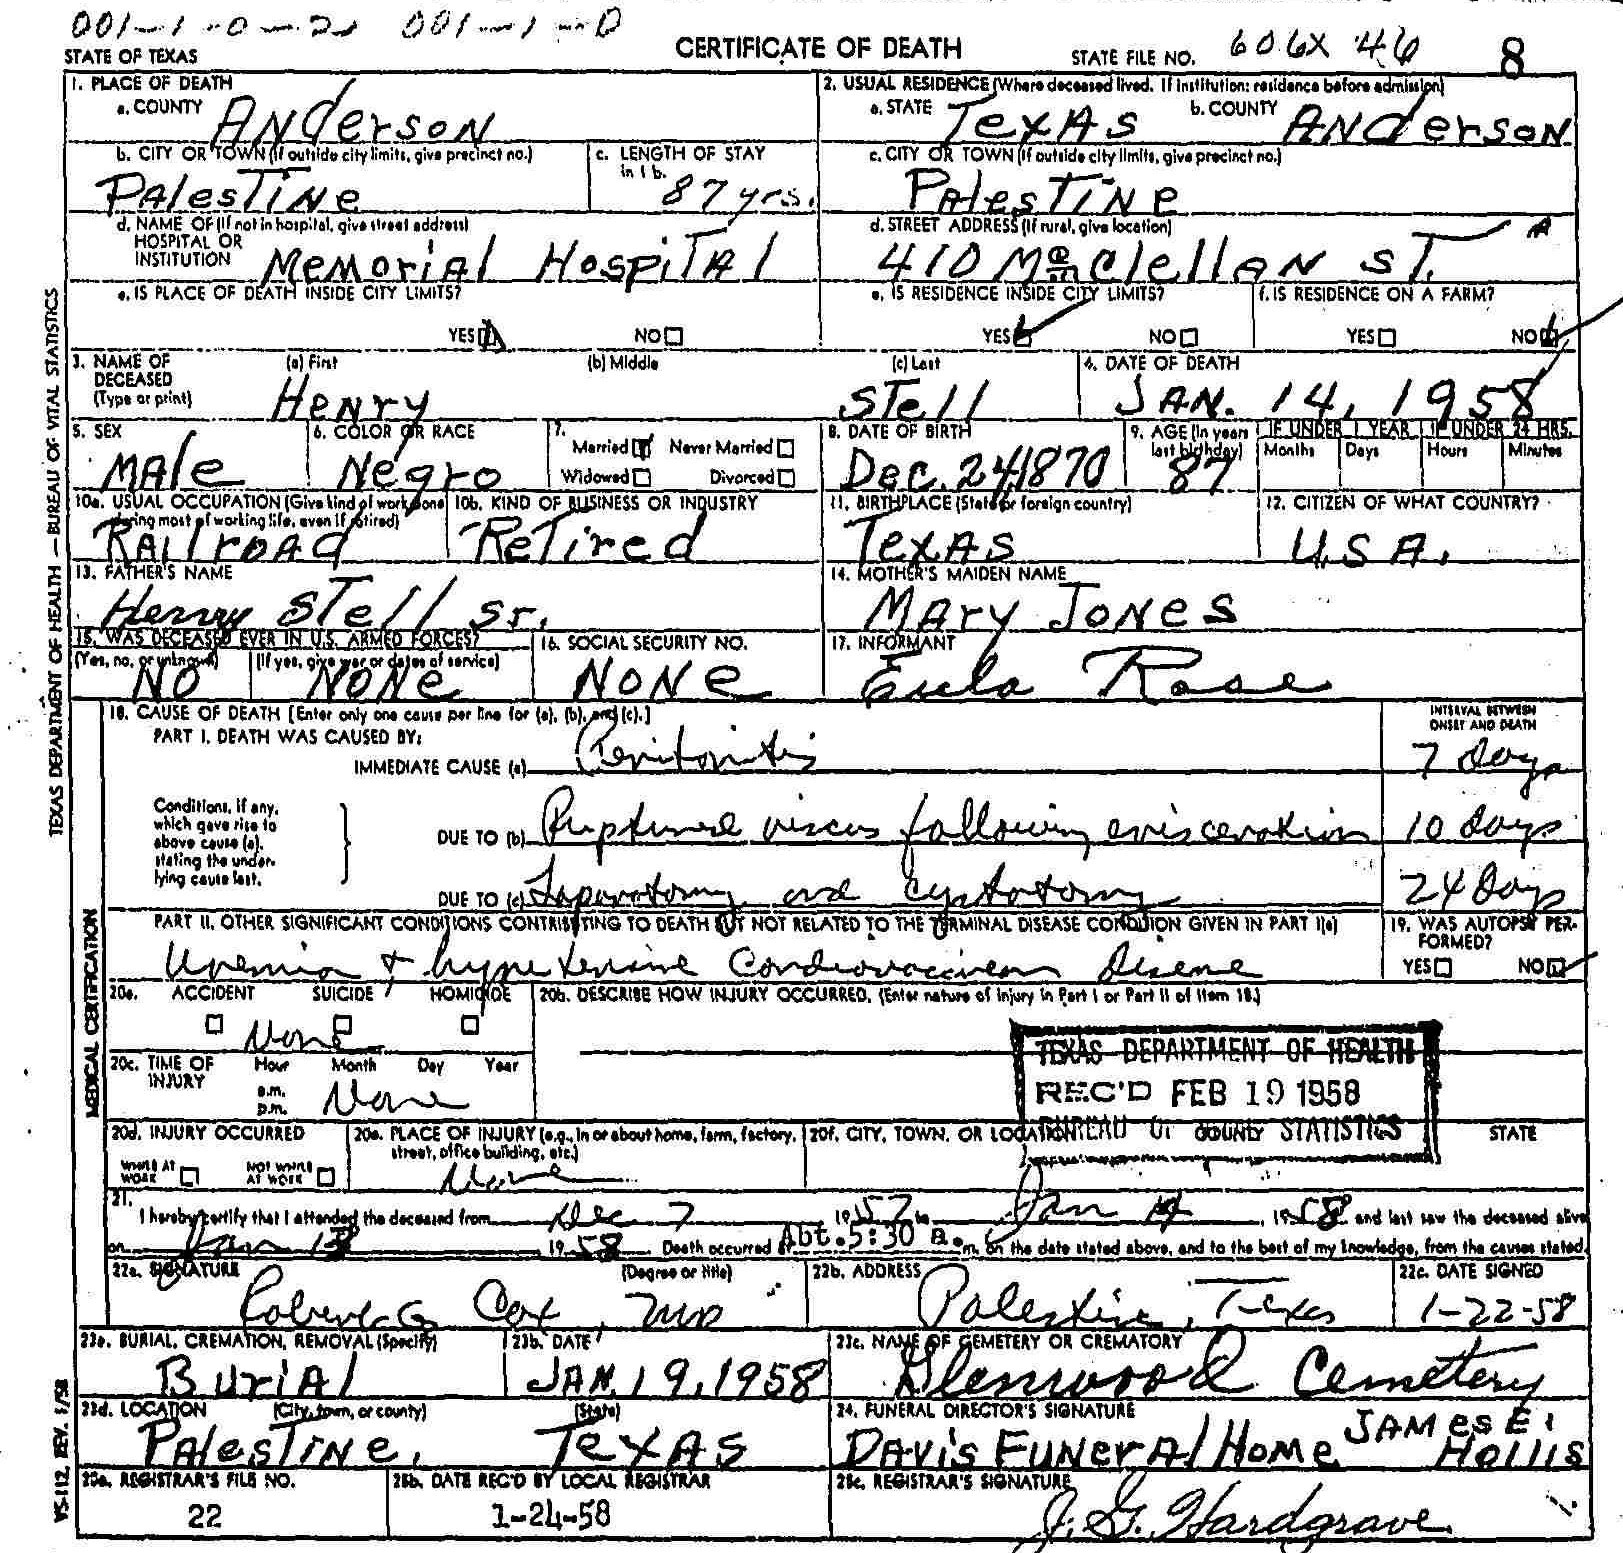 001-1-0-2 001-1-0
STATE OF TEXAS
CERTIFICATE OF DEATH
STATE FILE NO. 606X 46 8
1. PLACE OF DEATH
a. COUNTY Anderson
2. USUAL RESIDENCE (Where deceased lived. If institution: residence before admission)
a. STATE Texas b. COUNTY Anderson
b. CITY OR TOWN (If outside city limits, give precinct no.)
Palestine
c. LENGTH OF STAY in 1 b.
87 yrs.
c. CITY OR TOWN (If outside city limits, give precinct no.)
Palestine
d. NAME OF (If not in hospital, give street address)
HOSPITAL OR
INSTITUTION Memorial Hospital
d. STREET ADDRESS (If rural, give location)
410 McClellan St.
e. IS PLACE OF DEATH INSIDE CITY LIMITS?
YES NO
e. IS RESIDENCE INSIDE CITY LIMITS?
YES NO
f. IS RESIDENCE ON A FARM?
YES NO
3. NAME OF DECEASED (Type or print)
(a) First (b) Middle (c) Last
Henry Stell
4. DATE OF DEATH
Jan. 14, 1958
5. SEX
Male
6. COLOR OR RACE
Negro
7. Married Never Married
Widowed Divorced
8. DATE OF BIRTH
Dec. 24, 1870
9. AGE (In years last birthday)
87
IF UNDER 1 YEAR IF UNDER 24 HRS.
Months Days Hours Minutes
10a. USUAL OCCUPATION (Give kind of work done during most of working life, even if retired)
Railroad
10b. KIND OF BUSINESS OR INDUSTRY
Retired
11. BIRTHPLACE (State or foreign country)
Texas
12. CITIZEN OF WHAT COUNTRY?
U.S.A.
13. FATHER'S NAME
Henry Stell Sr.
14. MOTHER'S MAIDEN NAME
Mary Jones
15. WAS DECEASED EVER IN U.S. ARMED FORCES?
(Yes, no, or unknown) (If yes, give war or dates of service)
No None
16. SOCIAL SECURITY NO.
None
17. INFORMANT
Eula Rose
18. CAUSE OF DEATH [Enter only one cause per line for (a), (b), and (c).]
INTERVAL BETWEEN ONSET AND DEATH
PART I. DEATH WAS CAUSED BY:
IMMEDIATE CAUSE (a) Peritonitis 7 days
Conditions, if any, which gave rise to above cause (a), stating the underlying cause last.
DUE TO (b) Ruptured viscus following evisceration 10 days
DUE TO (c) Laparotomy and Cystotomy 24 days
PART II. OTHER SIGNIFICANT CONDITIONS CONTRIBUTING TO DEATH BUT NOT RELATED TO THE TERMINAL DISEASE CONDITION GIVEN IN PART I(a)
Uremia + hypertensive Cardiovascular disease
19. WAS AUTOPSY PERFORMED?
YES NO
20a. ACCIDENT SUICIDE HOMICIDE
None
20b. DESCRIBE HOW INJURY OCCURRED. (Enter nature of injury in Part I or Part II of Item 18.)
20c. TIME OF INJURY Hour Month Day Year
a.m.
p.m. None
TEXAS DEPARTMENT OF HEALTH
REC'D FEB 19 1958
BUREAU OF STATISTICS
20d. INJURY OCCURRED
WHILE AT WORK NOT WHILE AT WORK
20e. PLACE OF INJURY (e.g., in or about home, farm, factory, street, office building, etc.)
None
20f. CITY, TOWN, OR LOCATION COUNTY STATE
21. I hereby certify that I attended the deceased from Dec 7 1957 to Jan 14, 1958 and last saw the deceased alive
on Jan 13 1958 Death occurred at Abt. 5:30 a. m. on the date stated above, and to the best of my knowledge, from the causes stated.
22a. SIGNATURE (Degree or title)
Robert G Cox, MD
22b. ADDRESS
Palestine, Texas
22c. DATE SIGNED
1-22-58
23a. BURIAL, CREMATION, REMOVAL (Specify)
Burial
23b. DATE
Jan. 19, 1958
23c. NAME OF CEMETERY OR CREMATORY
Glenwood Cemetery
23d. LOCATION (City, town, or county) (State)
Palestine, Texas
24. FUNERAL DIRECTOR'S SIGNATURE
Davis Funeral Home James E. Hollis
25a. REGISTRAR'S FILE NO.
22
25b. DATE REC'D BY LOCAL REGISTRAR
1-24-58
25c. REGISTRAR'S SIGNATURE
J. G. Hardgrave
TEXAS DEPARTMENT OF HEALTH — BUREAU OF VITAL STATISTICS
MEDICAL CERTIFICATION
VS-112, REV. 1/58